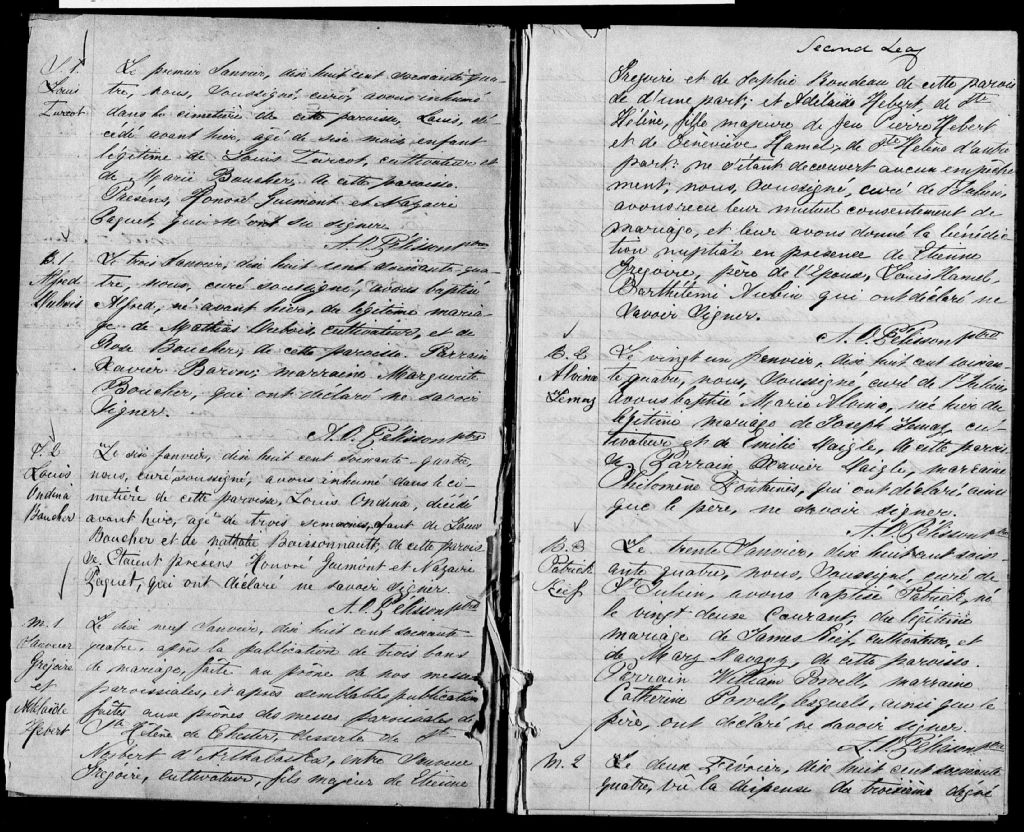 S. 1.
Louis
Turcot
Le premier Janvier, dix huit cent soixante qua-
tre, nous, soussigné, curé, avons inhumé
dans le cimetière de cette paroisse, Louis, dé
cédé avant hier, agé de six mois enfant
légitime de Louis Turcot, cultivateur et
de Marie Boucher, de cette paroisse.
Présens, Honoré Guimont et Nazaire
Paquet, qui n'ont su signer.
A. O. Pélisson ptre
B. 1.
Alfred
Dubois
Le trois Janvier, dix huit cent soixante-qua-
tre, nous, curé soussigné, avons baptisé
Alfred, né avant hier, du légitime maria-
ge de Mathias Dubois, cultivateur, et de
Rose Boucher, de cette paroisse. Parrain
Xavier Baron; marraine Marguerite
Boucher, qui ont déclaré ne savoir
signer.
A. O. Pélisson ptre
S. 2
Louis
Ondina
Boucher
Le six Janvier, dix huit cent soixante-quatre,
nous, curé soussigné, avons inhumé dans le ci-
metière de cette paroisse, Louis Ondina, décédé
avant hier, agé de trois semaines, de Louis
Boucher et de Nathalie Boissonnault, de cette parois
se. Etaient présens Honoré Guimont et Nazaire
Paquet, qui ont déclaré ne savoir signer
A. O. Pélisson ptre
M. 1
Grégoire
et
Adélaïde
Hébert
Le dix neuf Janvier, dix huit cent soixante
quatre, après la publication de trois bans
de mariage, faite au prône de nos messes
paroissiales, et après semblable publication
faites aux prônes des messes paroissiales de
Ste Hélène de Chester, desserte de St
Norbert d'Arthabaska, entre
Grégoire, cultivateur, fils majeur de Etienne
Second Leaf
Grégoire et de Sophie Bondeau de cette parois
se d'une part; et Adélaïde Hebert, de Ste
Hélène, fille majeure de feu Pierre Hebert
et de Geneviève Hamel, de Ste Helene d'autre
part: ne s'étant decouvert aucun empêche
ment, nous, soussigné, curé de St Julien,
avons recu leur mutuel consentement de
mariage, et leur avons donné la bénédic-
tion nuptiale en presence de Etienne
Gregoire, père de l'Epoux, Louis Hamel,
Barthélemi Aubin qui ont déclaré ne
savoir signer.
A. O. Pélisson ptre
B. 2
Alvina
Lemay
Le vingt un janvier, dix huit cent soixan-
te quatre, nous, soussigné, curé de St Julien,
avons baptisé Marie Alvina, née hier du
légitime mariage de Joseph Lemay, cul
tivateur et de Emilie Daigle, de cette parois
se. Parrain Xavier Daigle, marraine
Philomène Fontaine, qui ont déclaré, ainsi
que le père, ne savoir signer.
A. O. Pélisson ptre
B. 3
Patrick
Keef
Le trente Janvier, dix huit cent soix
ante quatre, nous, soussigné, curé de
St Julien, avons baptisé Patrick, né
le vingt deuxe Courant, du légitime
mariage de James Keef, cultivateur, et
de Mary, de cette paroisse.
Parrain William Powell, marraine
Catherine Powell, lesquels, ainsi que le
père, ont déclaré ne savoir signer.
A. O. Pélisson ptre
M. 2
Le deux Fevrier, dix huit cent soixante
quatre, vû la dispense du troisième degré